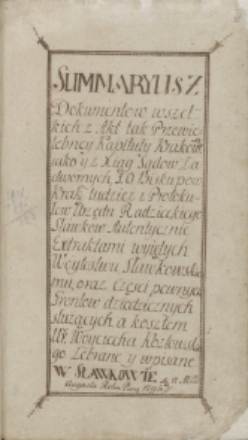 SUMMARYUSZ
Dokumentow wszel-
kich z Akt tak Przewie-
lebney Kapituły Krakow:
jako y z Xiąg Sądow Za-
dwornych J.O. Biskupow
Krak: tudziez z Protoku-
łow Urzędu Radzieckiego
Sławkow Autentycznie
Extraktami wyiętych
Woytostwu Sławkowskie
mu, oraz części pewnych
Grontow dziedzicznych
słuzących, a kosztem
Ur. Woyciecha Kozłowskie
go Zebrane y wpisane
W SŁAWKOWIE
Augusta Roku